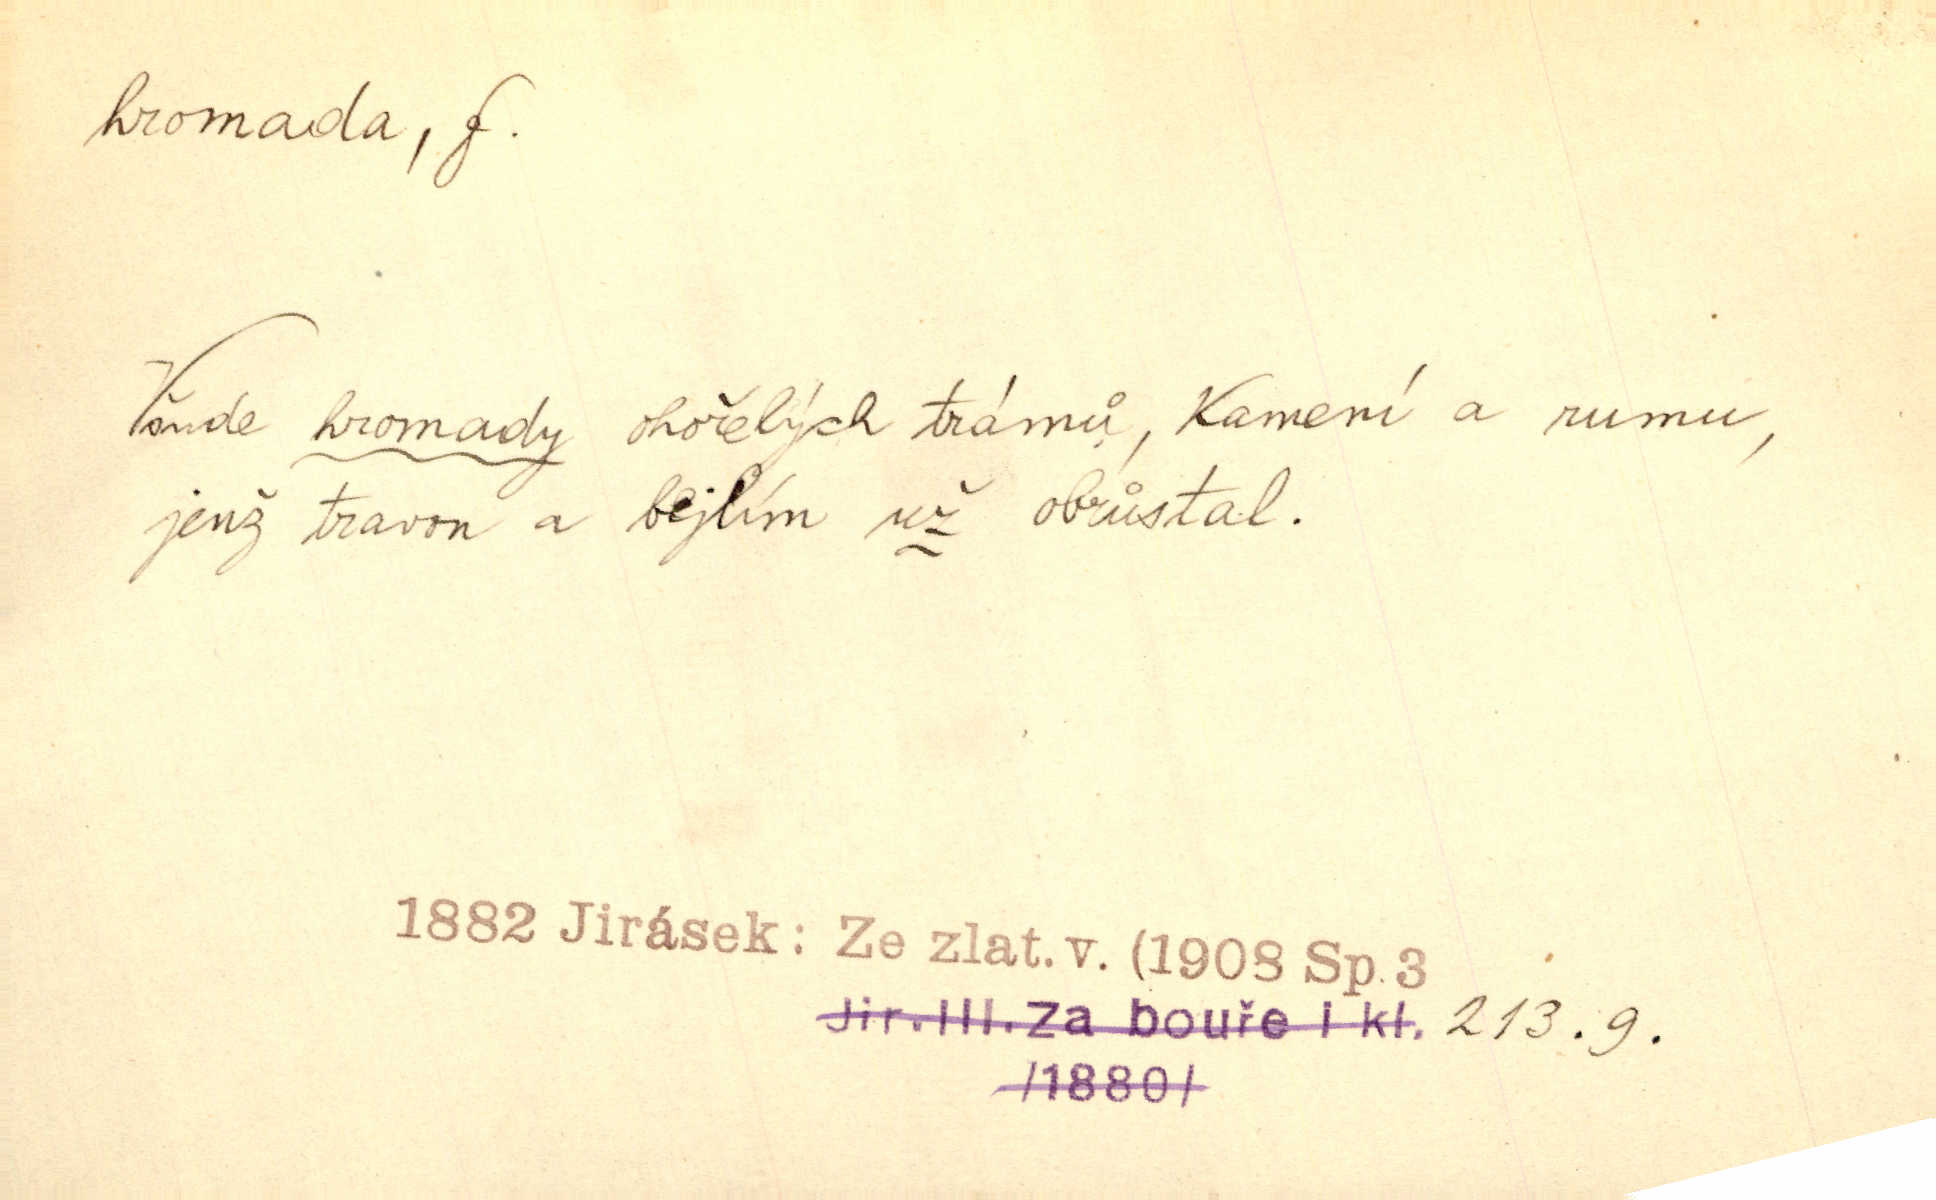 hromada, f.
Všude hromady ohořelých trámů, kamení a rumu,
jenž travou a bejlím už obrůstal.
1882 Jirásek: Ze zlat. v. (1908 Sp. 3
Jir. III. Za bouře i kl. 213.9.
/1880/